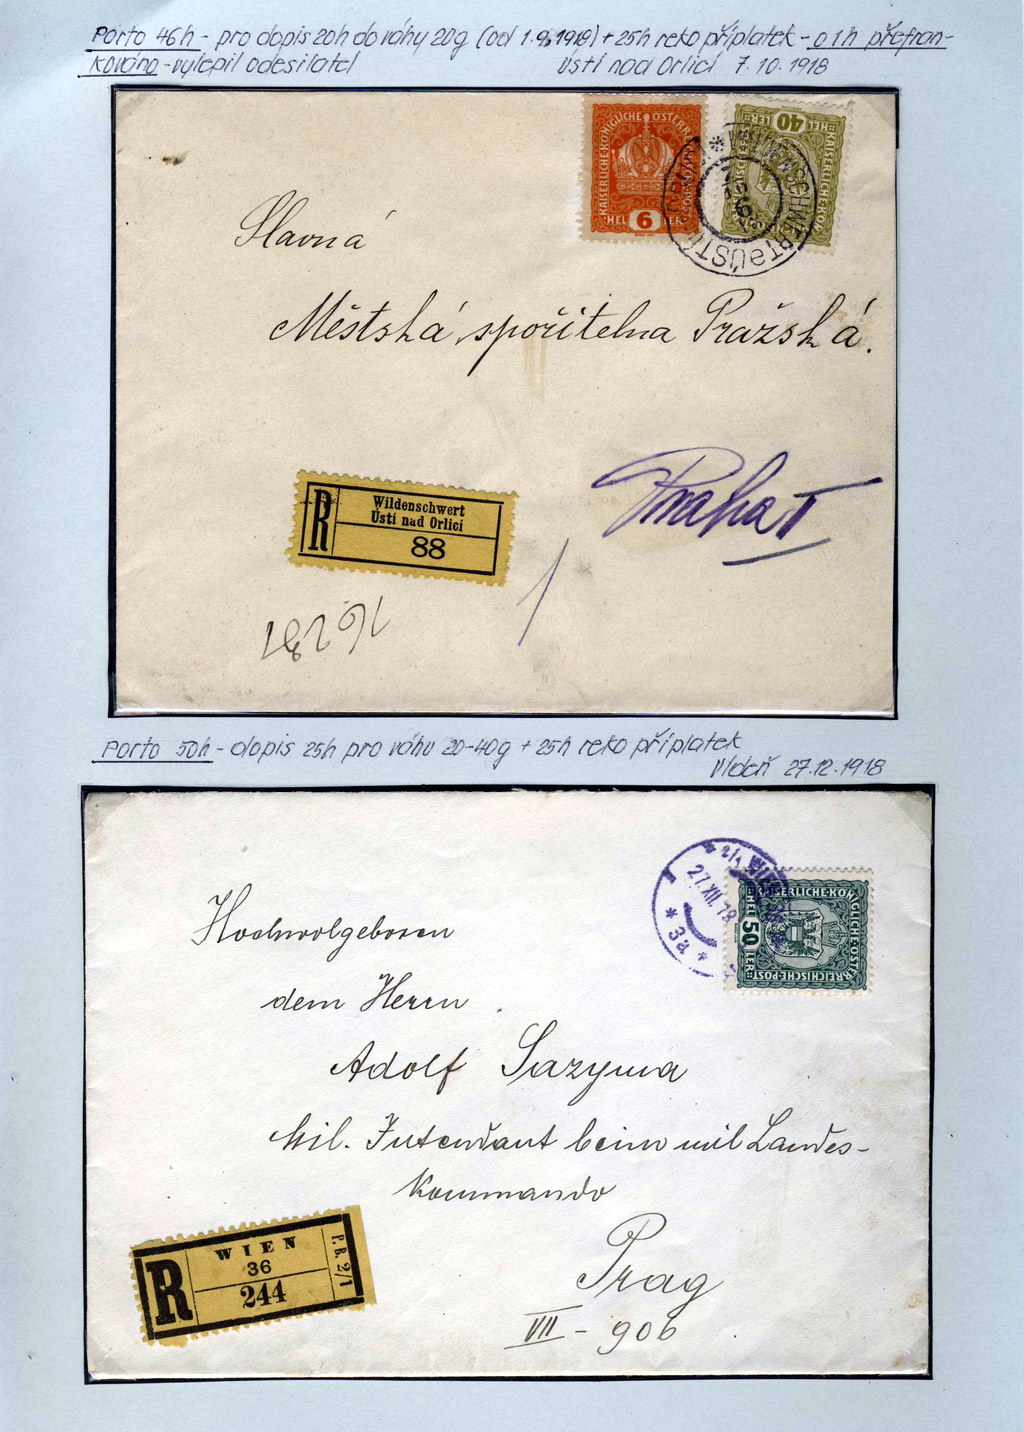 Porto 46h - pro dopis 20h do váhy 20g (od 1.9.1918) + 25h reko příplatek - o 1h přefran-
kováno - vylepil odesílatel Ústí nad Orlicí 7.10.1918
KAISERLICHE KÖNIGLICHE ÖSTERR
HEL 6 LER
HEL 40 LER
KAISERLICHE KÖ
Slavná
Městská spořitelna Pražská.
Praha I
R
Wildenschwert
Ústí nad Orlicí
88
Porto 50h - dopis 25h pro váhu 20-40g + 25h reko příplatek
Vídeň 27.12.1918
2/1 WIEN
27.XII.18
* 3a *
KAISERLICHE KÖNIGLICH ÖST
ERREICHISCHE POST
HEL 50 LER
Hochwolgeboren
dem Herrn
Adolf Sazyma
Mil. Intendant beim mil Landes-
kommando
Prag
VII - 906
R
WIEN
36
244
P.B. 2/1